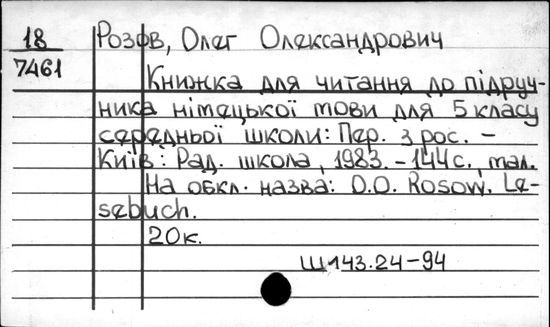 18
7461
Розов, Олег Олександрович
Книжка для читання до підруч-
ника німецької мови для 5 класу
середньої школи: Пер. з рос. –
Київ: Рад. школа, 1983. – 144 с., мал.
На обкл. назва: O.O. Rosow. Le-
sebuch.
20к.
Ш143.24–94